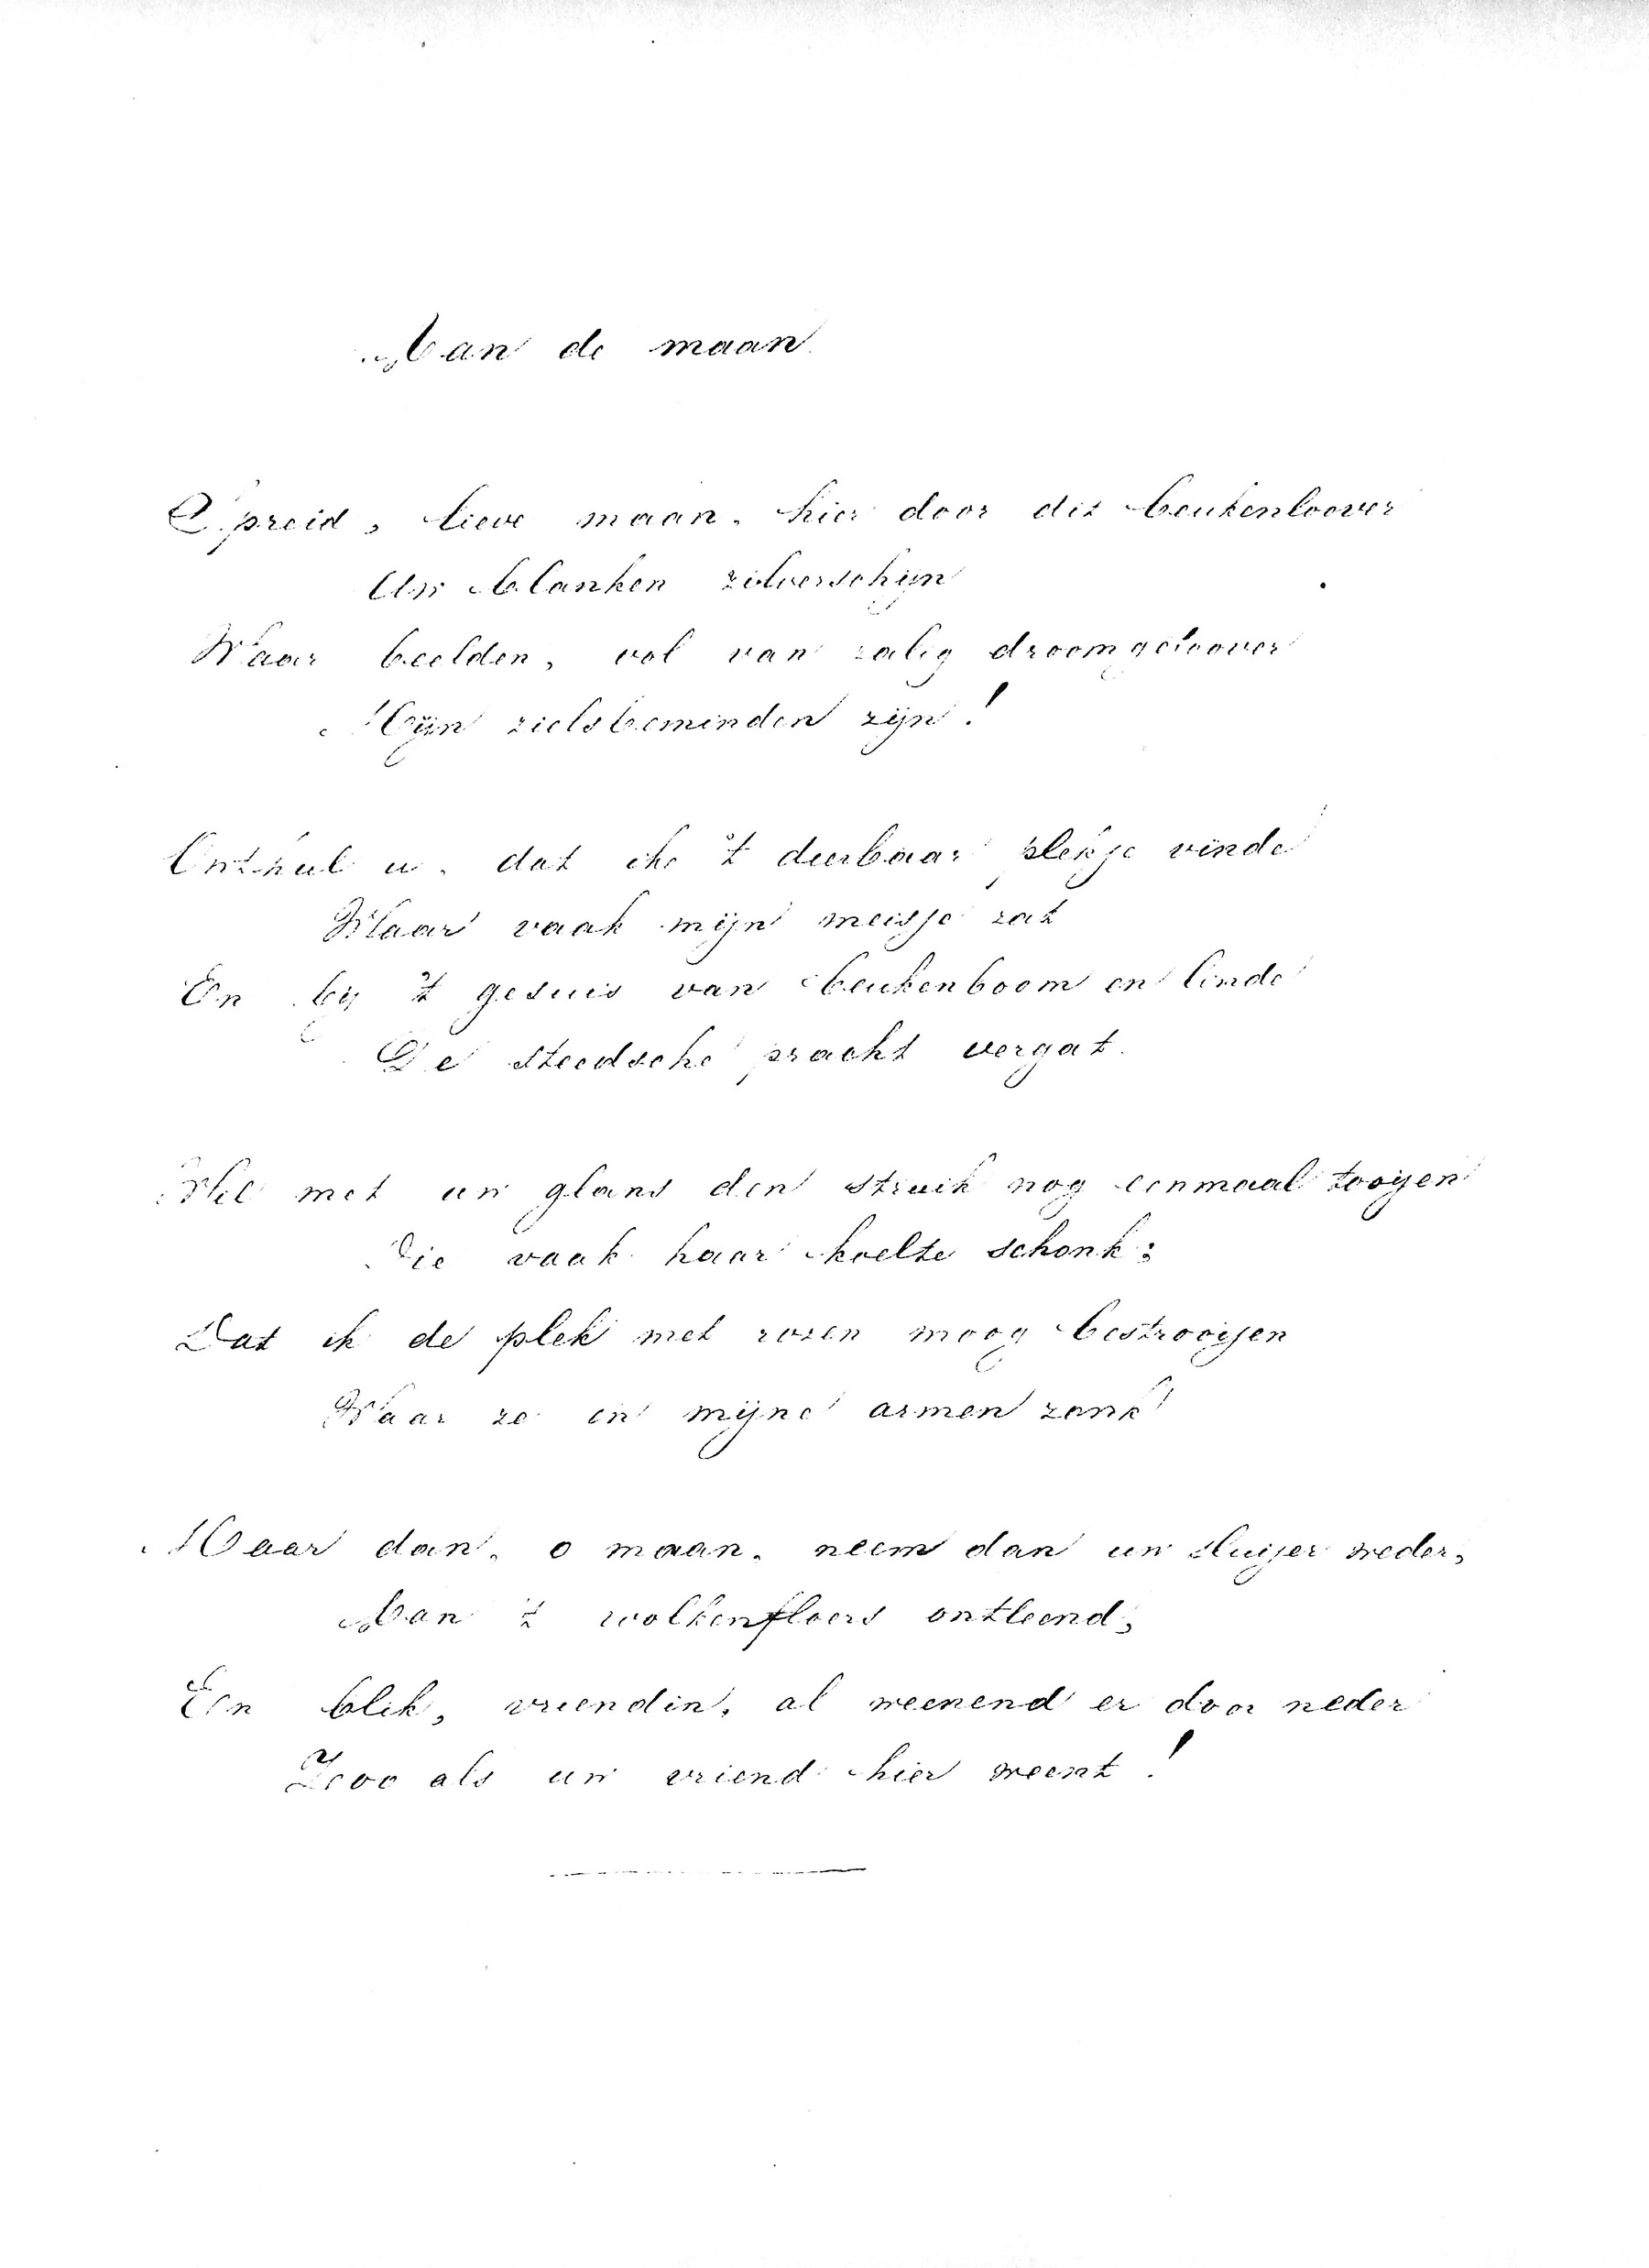 Aan de maan.
Spreid, lieve maan, hier door dit beukenloover
Uw blanken zilverschijn
Waar beelden, vol van zalig droomgetoover
Mijn zielsbeminden zijn!
Onthul u, dat ik 't dierbaar plekje vinde
Waar vaak mijn meisje zat
En bij 't gesuis van beukenboom en linde
De steedsche pracht vergat.
Wil met uw glans den struik nog eenmaal tooijen
Die vaak haar koelte schonk;
Dat ik de plek met rozen moog bestrooijen
Waar ze in mijne armen zonk
Maar dan, o maan, neem dan uw sluijer weder,
Aan 't wolkenfloers ontleend,
En blik, vriendin, al weenend er door neder
Zoo als uw vriend hier weent!